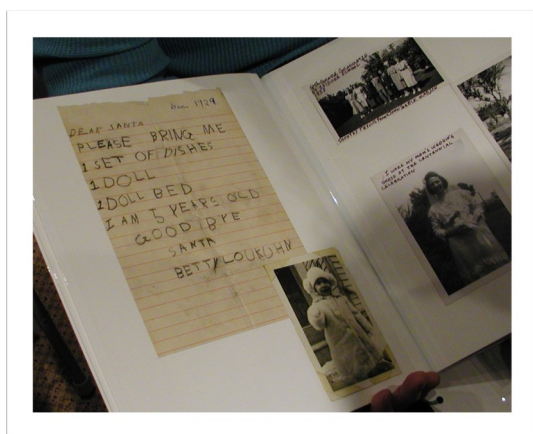 Dec. 1929
DEAR SANTA
PLEASE BRING ME
1 SET OF DISHES
1 DOLL
1 DOLL BED
I AM 5 YEARS OLD
GOOD BYE
SANTA
BETTY LOU KUHN
I WORE MY MOM'S WEDDING
DRESS AT THE CENTENNIAL
CELEBRATION